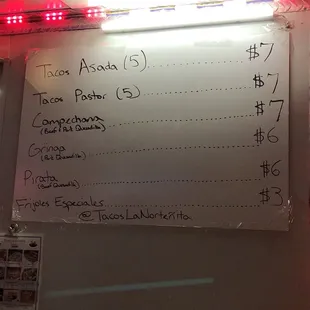 Tacos Asada (5) $7
Tacos Pastor (5) $7
Campechana $7
(Beef & Pork Quesadilla)
Gringa $6
(Pork Quesadilla)
Pirata $6
(Beef Quesadilla)
Frijoles Especiales $3
@TacosLaNorteñita